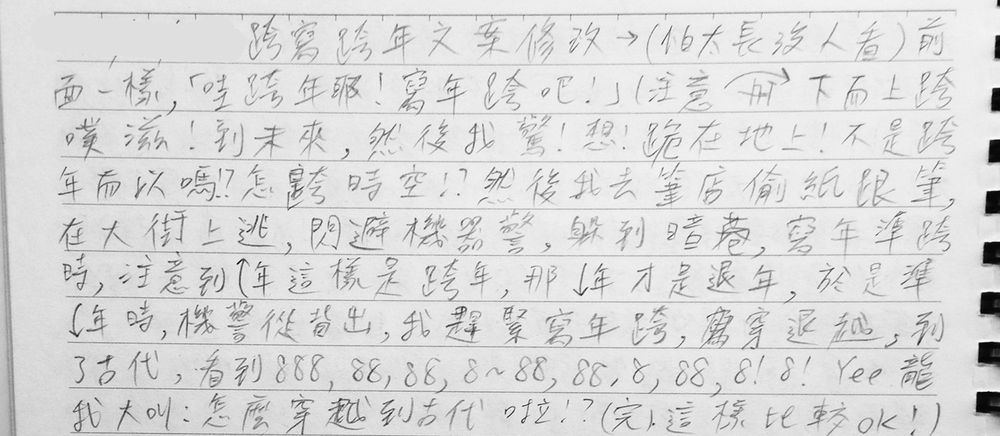 跨寫跨年文案修改→(怕太長沒人看)前
面一樣,「哇跨年耶!寫年跨吧!」(注意 下而上跨
噗滋!到未來,然後我驚!想!跪在地上!不是跨
年而以嗎!?怎跨時空!?然後我去筆店偷紙跟筆,
在大街上逃,閃避機器警,躲到暗巷,寫年準跨
時,注意到↑年這樣是跨年,那↓年才是退年,於是準
↓年時,機警從背出,我趕緊寫年跨,穿退越,到
了古代,看到888,88,88,8~88,88,8,88,8!8!Yee龍
我大叫:怎麼穿越到古代啦!?(完).這樣比較OK!)